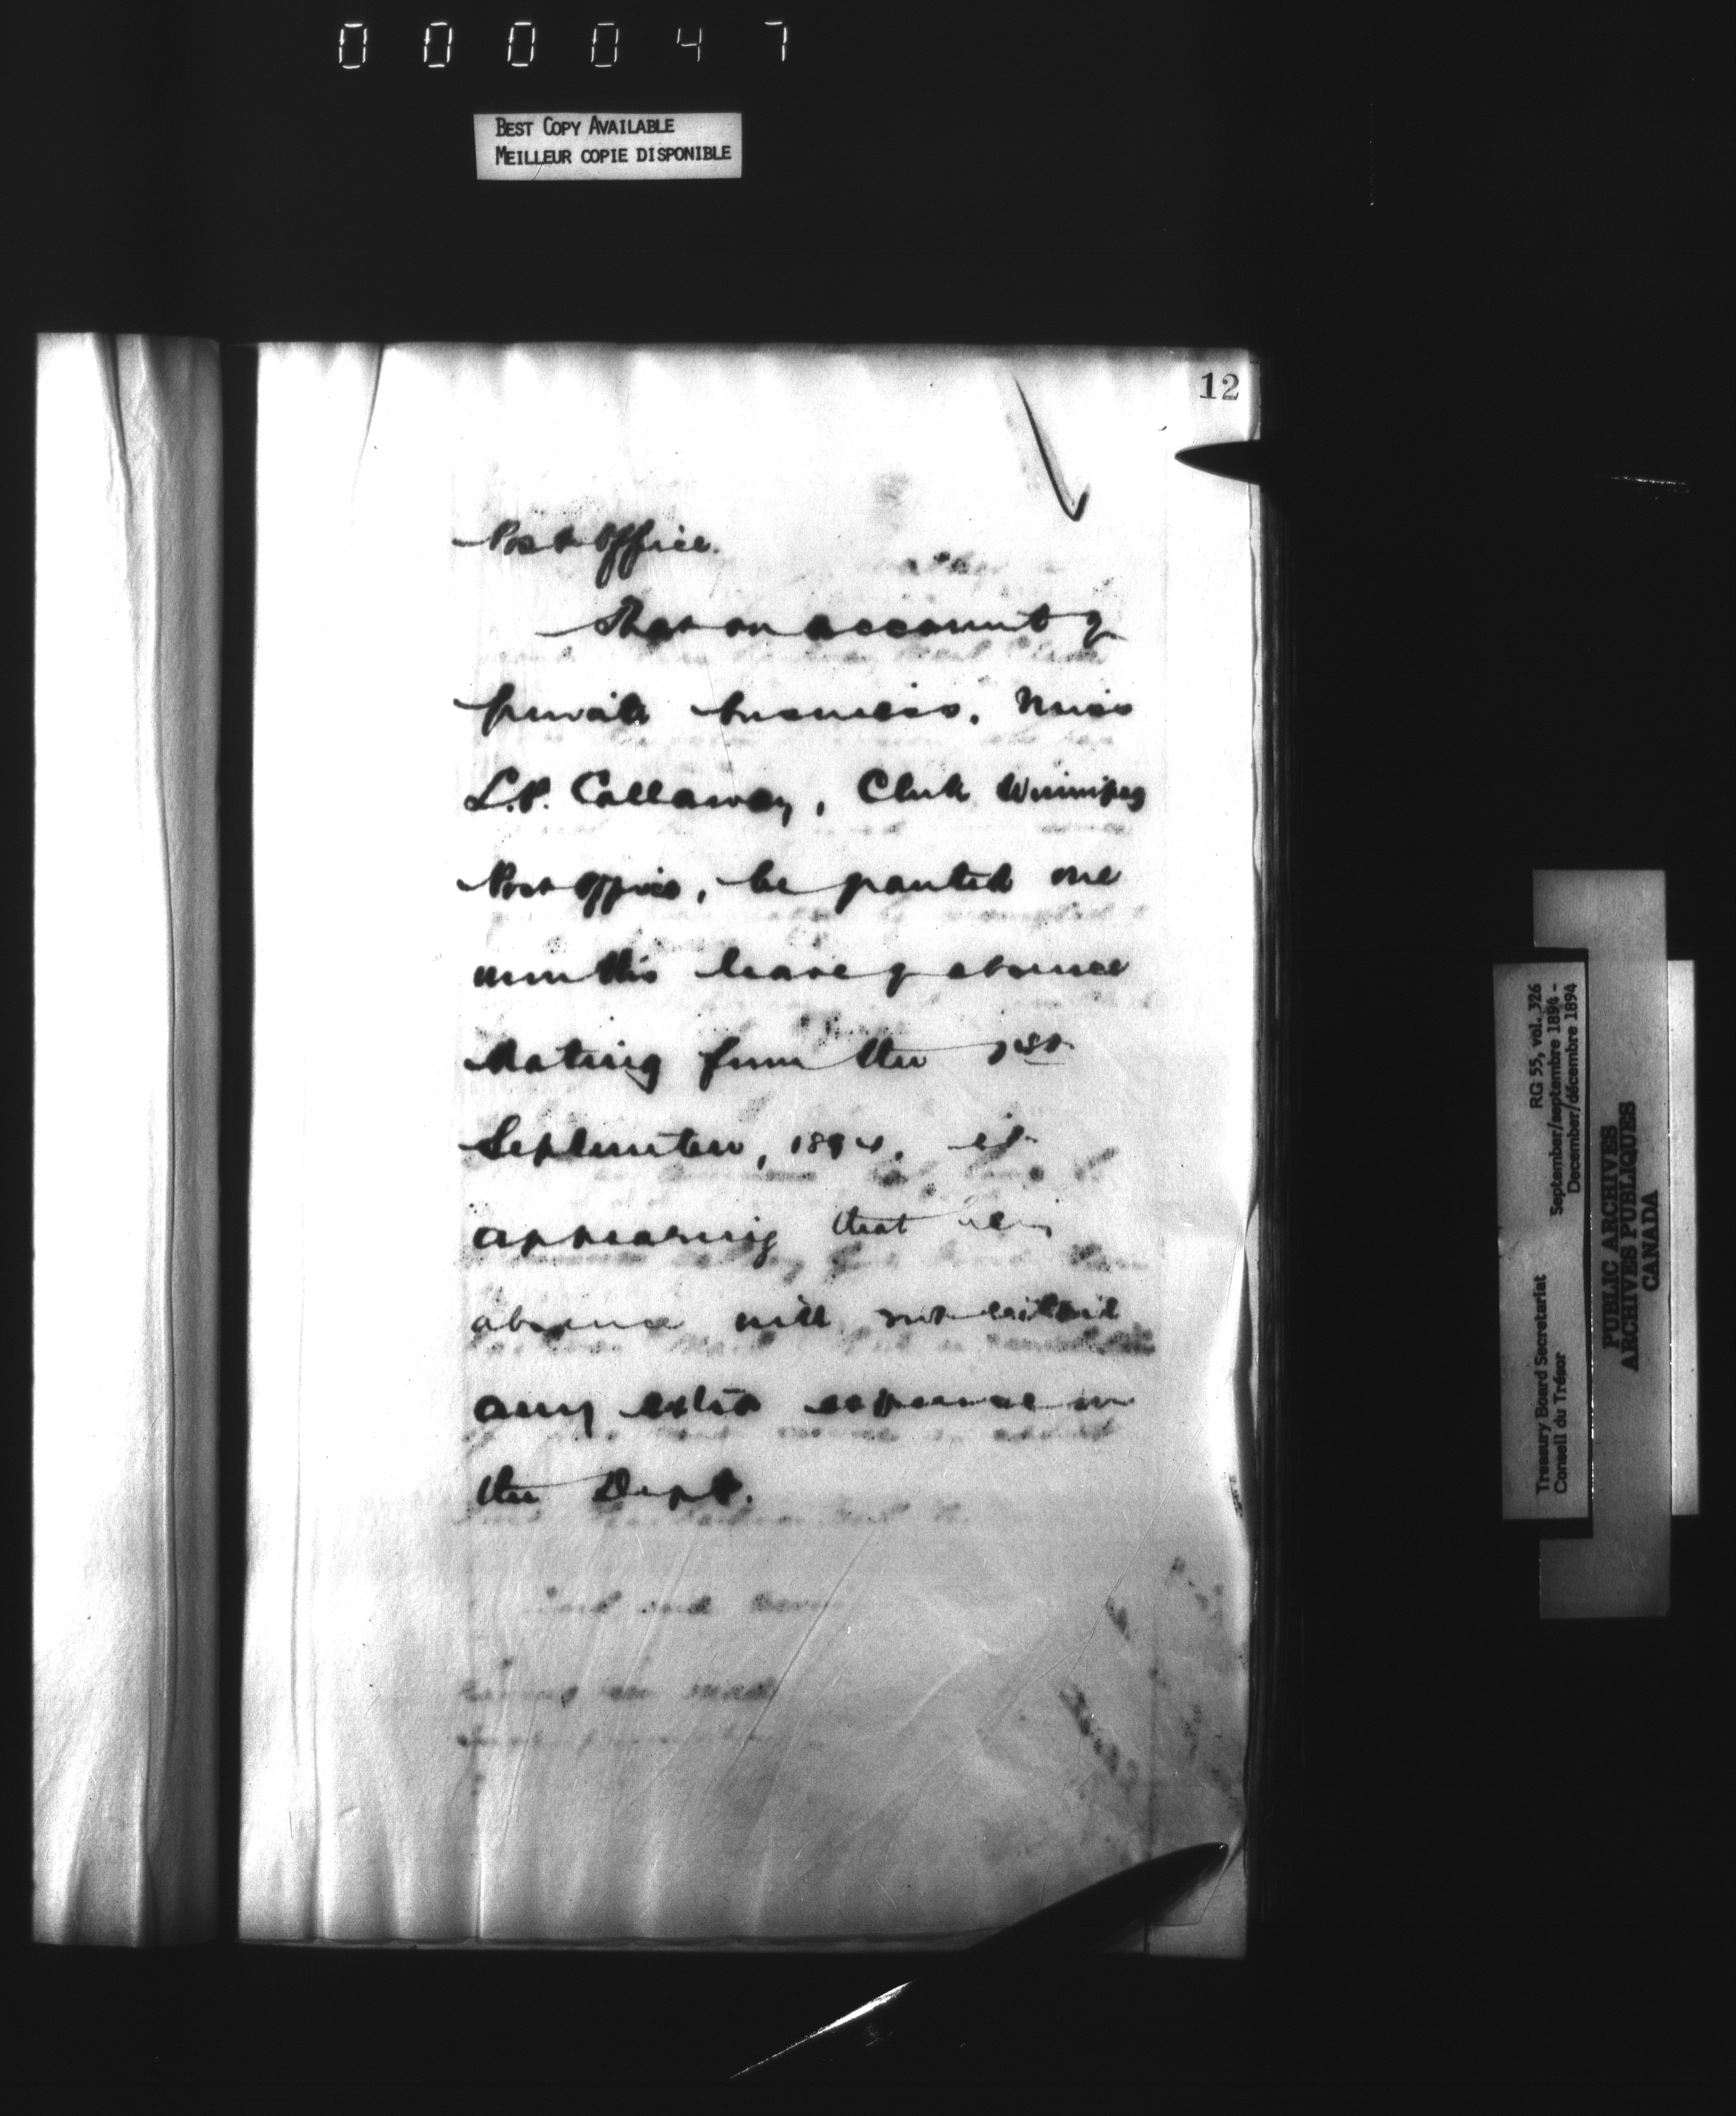 000047
BEST COPY AVAILABLE
MEILLEUR COPIE DISPONIBLE
12
Post Office.
That on account of
private business, Miss
L.P. Callaway, Clerk Winnipeg
Post Office, be granted one
months leave of absence
dating from the 1st
September, 1894, it
appearing that her
absence will not entail
any extra expense on
the Dept.
Treasury Board Secretariat RG 55, vol. 326
Conseil du Trésor September/septembre 1894 -
December/décembre 1894
PUBLIC ARCHIVES
ARCHIVES PUBLIQUES
CANADA